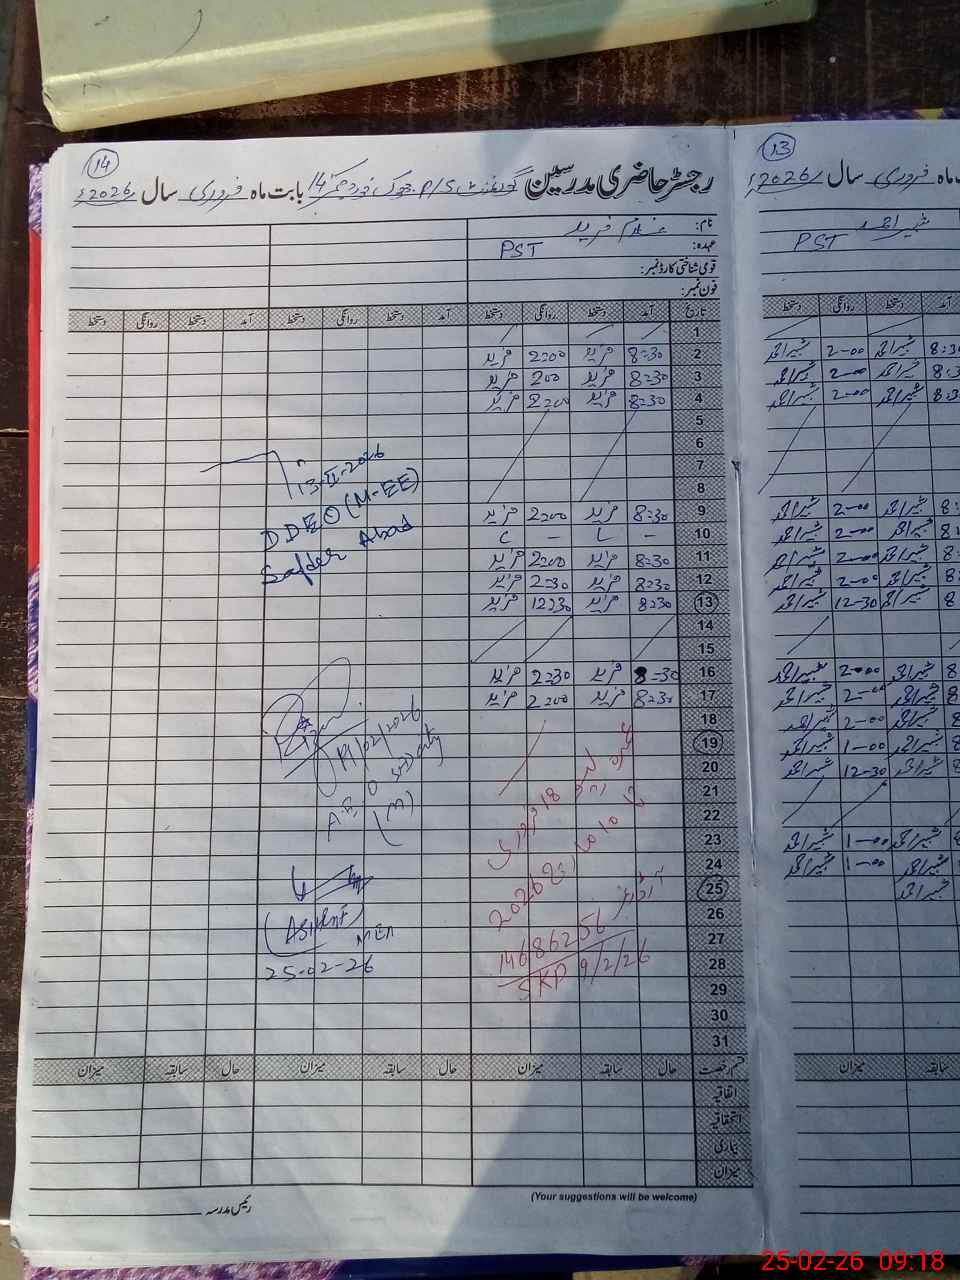 14
رجسٹر حاضری مدرسین گورنمنٹ P/S چوک نمبر 14 بابت ماہ فروری سال 2026ء
نام: غلام فرید
عہدہ: PST
قومی شناختی کارڈ نمبر:
فون نمبر:
تاریخ آمد دستخط روانگی دستخط آمد دستخط روانگی دستخط
1
2 8:30 فرید 2:00 فرید
3 8:30 فرید 200 فرید
4 8:30 فرید 2:00 فرید
5
6
7
8
9 8:30 فرید 2:00 فرید
10 – L – C
11 8:30 فرید 2:00 فرید
12 8:30 فرید 2:30 فرید
13 8:30 فرید 12:30 فرید
14
15
16 8:30 فرید 2:30 فرید
17 8:30 فرید 2:00 فرید
18
19
20
21
22
23
24
25
26
27
28
29
30
31
13-II-2026
DDEO (M-EE)
Safder Abad
19/02/2026
A.E.O
(M)
18 فروری
10 مارچ 2026
14686256
SKP 9/2/26
(ASHRAF)
MEA
25-02-26
قسم رخصت حال سابقہ میزان حال سابقہ میزان حال سابقہ میزان
اتفاقیہ
استحقاقیہ
بیماری
میزان
(Your suggestions will be welcome)
رئیس مدرسہ
13
ماہ فروری سال 2026ء
شبیر احمد
PST
آمد دستخط روانگی دستخط
8:30 شبیر احمد 2-00 شبیر احمد
8:3 شبیر احمد 2-00 شبیر احمد
8:3 شبیر احمد 2-00 شبیر احمد
8: شبیر احمد 2-00 شبیر احمد
8 شبیر احمد 2-00 شبیر احمد
8 شبیر احمد 2-00 شبیر احمد
8 شبیر احمد 2-00 شبیر احمد
8 شبیر احمد 12-30 شبیر احمد
8 شبیر احمد 2-00 شبیر احمد
8 شبیر احمد 2-00 شبیر احمد
شبیر احمد 2-00 شبیر احمد
شبیر احمد 1-00 شبیر احمد
شبیر احمد 12-30 شبیر احمد
شبیر احمد 1-00 شبیر احمد
شبیر احمد 1-00 شبیر احمد
شبیر احمد
سابقہ میزان
25-02-26 09:18